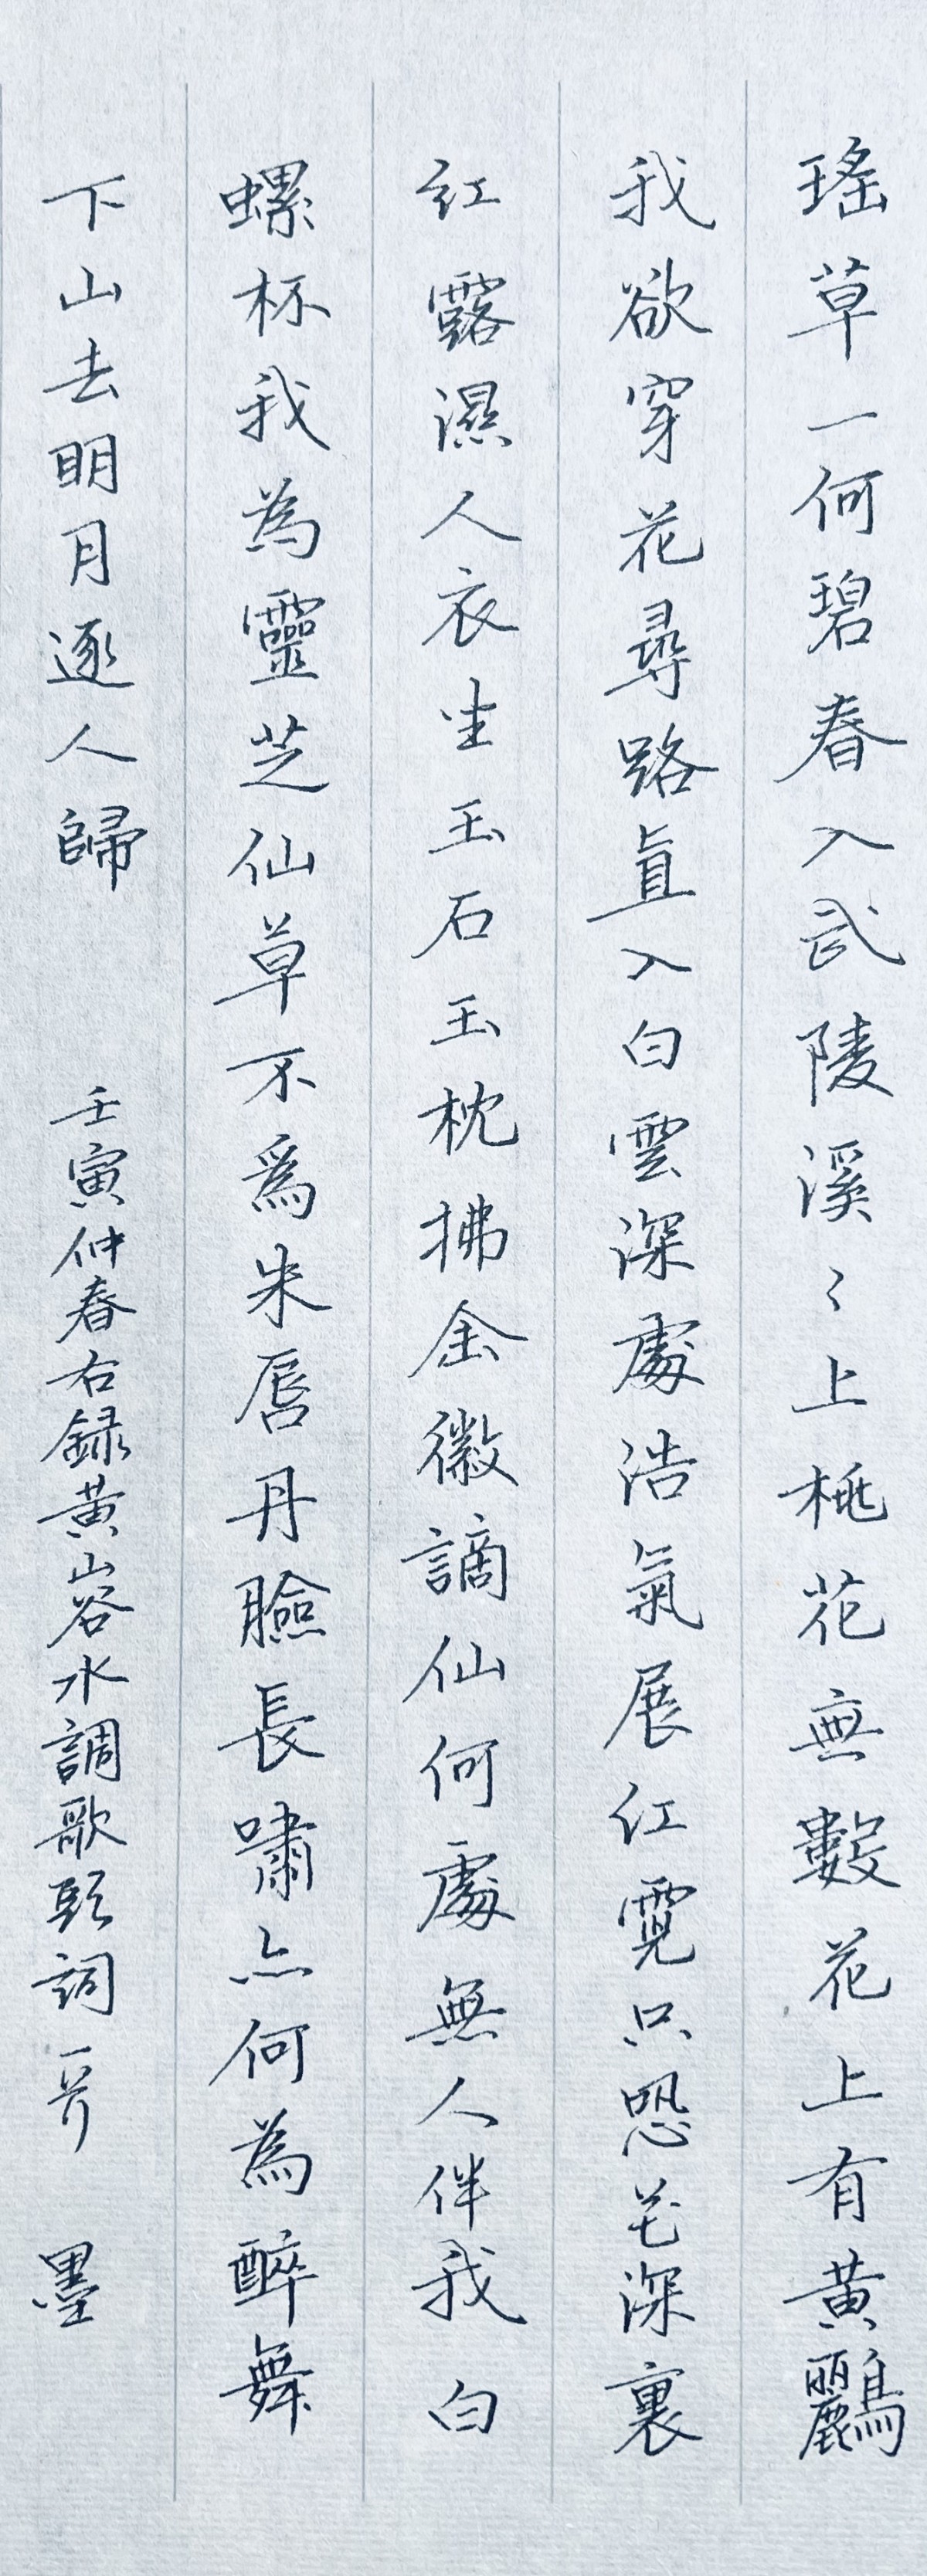 瑤草一何碧春入武陵溪〻上桃花無數花上有黃鸝
我欲穿花尋路直入白雲深處浩氣展紅霓只恐花深裏
紅露濕人衣坐玉石玉枕拂金徽謫仙何處無人伴我白
螺杯我為靈芝仙草不為朱唇丹臉長嘯亦何為醉舞
下山去明月逐人歸
壬寅仲春右録黃山谷水調歌頭詞一 墨